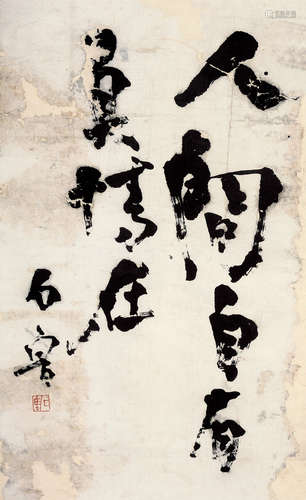 人間自有
真情在
石魯